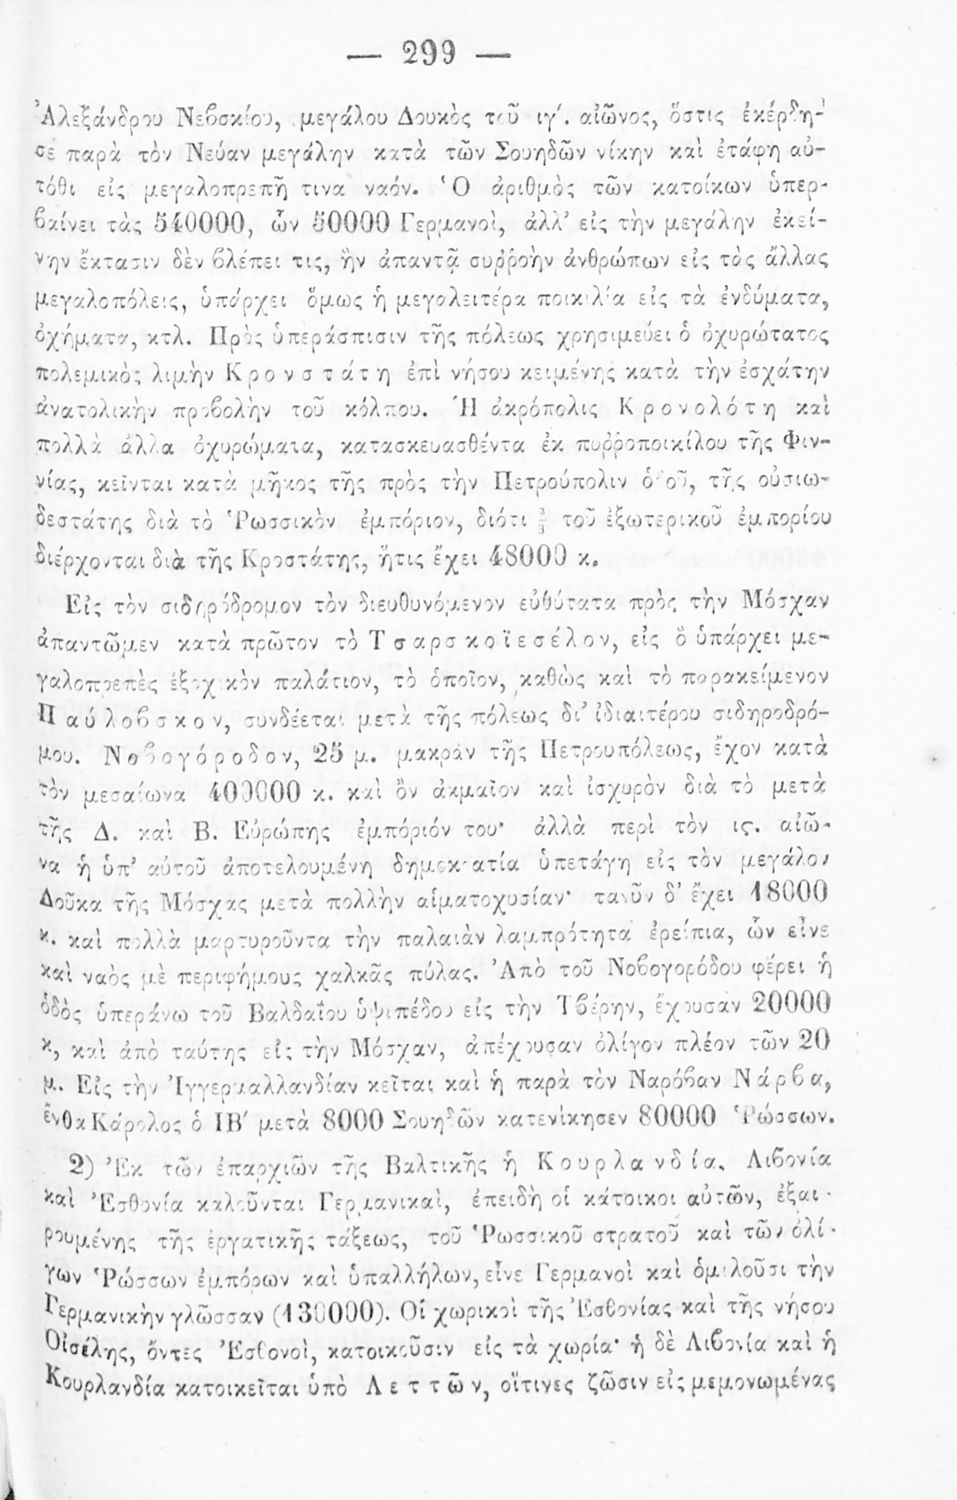 — 299 —
Ἀλεξάνδρου Νεβσκίου, μεγάλου Δουκὸς τοῦ ιγ΄. αἰῶνος, ὅστις ἐκέρδη-
σε παρὰ τὸν Νεύαν μεγάλην κατὰ τῶν Σουηδῶν νίκην καὶ ἐτάφη αὐ-
τόθι εἰς μεγαλοπρεπῆ τινα ναόν. Ὁ ἀριθμὸς τῶν κατοίκων ὑπερ-
βαίνει τὰς 540000, ὧν 50000 Γερμανοὶ, ἀλλ’ εἰς τὴν μεγάλην ἐκεί-
νην ἔκτασιν δὲν βλέπει τις, ἣν ἀπαντᾷ συῤῥοὴν ἀνθρώπων εἰς τὰς ἄλλας
μεγαλοπόλεις, ὑπάρχει ὅμως ἡ μεγαλειτέρα ποικιλία εἰς τὰ ἐνδύματα,
ὀχήματα, κτλ. Πρὸς ὑπεράσπισιν τῆς πόλεως χρησιμεύει ὁ ὀχυρώτατος
πολεμικὸς λιμὴν Κρονστάτη ἐπὶ νήσου κειμένης κατὰ τὴν ἐσχάτην
ἀνατολικὴν προβολὴν τοῦ κόλπου. Ἡ ἀκρόπολις Κρονολότη καὶ
πολλὰ ἄλλα ὀχυρώματα, κατασκευασθέντα ἐκ πυῤῥοποικίλου τῆς Φιν-
νίας, κεῖνται κατὰ μῆκος τῆς πρὸς τὴν Πετρούπολιν ὁδοῦ, τῆς οὐσιω-
δεστάτης διὰ τὸ Ῥωσσικὸν ἐμπόριον, διότι ⅔ τοῦ ἐξωτερικοῦ ἐμπορίου
διέρχονται διὰ τῆς Κροστάτης, ἥτις ἔχει 48000 κ.
Εἰς τὸν σιδηρόδρομον τὸν διευθυνόμενον εὐθύτατα πρὸς τὴν Μόσχαν
ἀπαντῶμεν κατὰ πρῶτον τὸ Τσαρσκοϊεσέλον, εἰς ὃ ὑπάρχει με-
γαλοπρεπὲς ἐξοχικὸν παλάτιον, τὸ ὁποῖον, καθὼς καὶ τὸ παρακείμενον
Παύλοβσκον, συνδέεται μετὰ τῆς πόλεως δι’ ἰδιαιτέρου σιδηροδρό-
μου. Νοβογόροδον, 25 μ. μακρὰν τῆς Πετρουπόλεως, ἔχον κατὰ
τὸν μεσαίωνα 400000 κ. καὶ ὂν ἀκμαῖον καὶ ἰσχυρὸν διὰ τὸ μετὰ
τῆς Δ. καὶ Β. Εὐρώπης ἐμπόριόν του· ἀλλὰ περὶ τὸν ις. αἰῶ-
να ἡ ὑπ’ αὐτοῦ ἀποτελουμένη δημοκρατία ὑπετάγη εἰς τὸν μεγάλον
Δοῦκα τῆς Μόσχας μετὰ πολλὴν αἱματοχυσίαν· τανῦν δ’ ἔχει 18000
κ. καὶ πολλὰ μαρτυροῦντα τὴν παλαιὰν λαμπρότητα ἐρείπια, ὧν εἶνε
καὶ ναὸς μὲ περιφήμους χαλκᾶς πύλας. Ἀπὸ τοῦ Νοβογορόδου φέρει ἡ
ὁδὸς ὑπεράνω τοῦ Βαλδαΐου ὑψιπέδου εἰς τὴν Τβέρην, ἔχουσαν 20000
κ, καὶ ἀπὸ ταύτης εἰς τὴν Μόσχαν, ἀπέχουσαν ὀλίγον πλέον τῶν 20
μ. Εἰς τὴν Ἰγγερμαλλανδίαν κεῖται καὶ ἡ παρὰ τὸν Ναρόβαν Νάρβα,
ἔνθα Κάρολος ὁ ΙΒ΄ μετὰ 8000 Σουηδῶν κατενίκησεν 80000 Ῥώσσων.
2) Ἐκ τῶν ἐπαρχιῶν τῆς Βαλτικῆς ἡ Κουρλανδία, Λιβονία
καὶ Ἐσθονία καλοῦνται Γερμανικαὶ, ἐπειδὴ οἱ κάτοικοι αὐτῶν, ἐξαι-
ρουμένης τῆς ἐργατικῆς τάξεως, τοῦ Ῥωσσικοῦ στρατοῦ καὶ τῶν ὀλί-
γων Ῥώσσων ἐμπόρων καὶ ὑπαλλήλων, εἶνε Γερμανοὶ καὶ ὁμιλοῦσι τὴν
Γερμανικὴν γλῶσσαν (130000). Οἱ χωρικοὶ τῆς Ἐσθονίας καὶ τῆς νήσου
Οἰσέλης, ὄντες Ἐσθονοὶ, κατοικοῦσιν εἰς τὰ χωρία· ἡ δὲ Λιβονία καὶ ἡ
Κουρλανδία κατοικεῖται ὑπὸ Λεττῶν, οἵτινες ζῶσιν εἰς μεμονωμένας